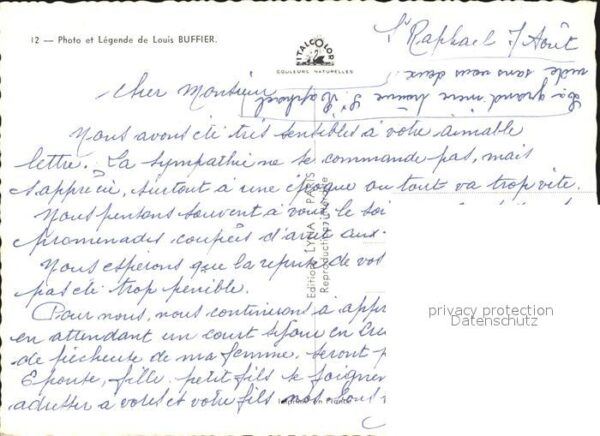 12 — Photo et Légende de Louis BUFFIER.
ITALCOLOR
COULEURS NATURELLES
St Raphael 7/Août
La grand'mère trouve St Raphael
vide sans vous deux !
Cher Monsieur
Nous avons été très sensibles à votre aimable
lettre. La sympathie ne se commande pas, mais
s'apprécie, surtout à une époque où tout va trop vite.
Nous pensons souvent à vous le soi
promenades coupées d'arrêt aux
Nous espérons que la reprise de vos
pas été trop pénible.
Pour nous, nous continuons à appr
en attendant un court séjour en
de pêcheuse de ma femme, seront p
Epouse, fille, petit fils se joignen
adresser à vous et votre fils nos
Editions LYNA - PARIS
Reproduction
Imprimé en France
privacy protection
Datenschutz